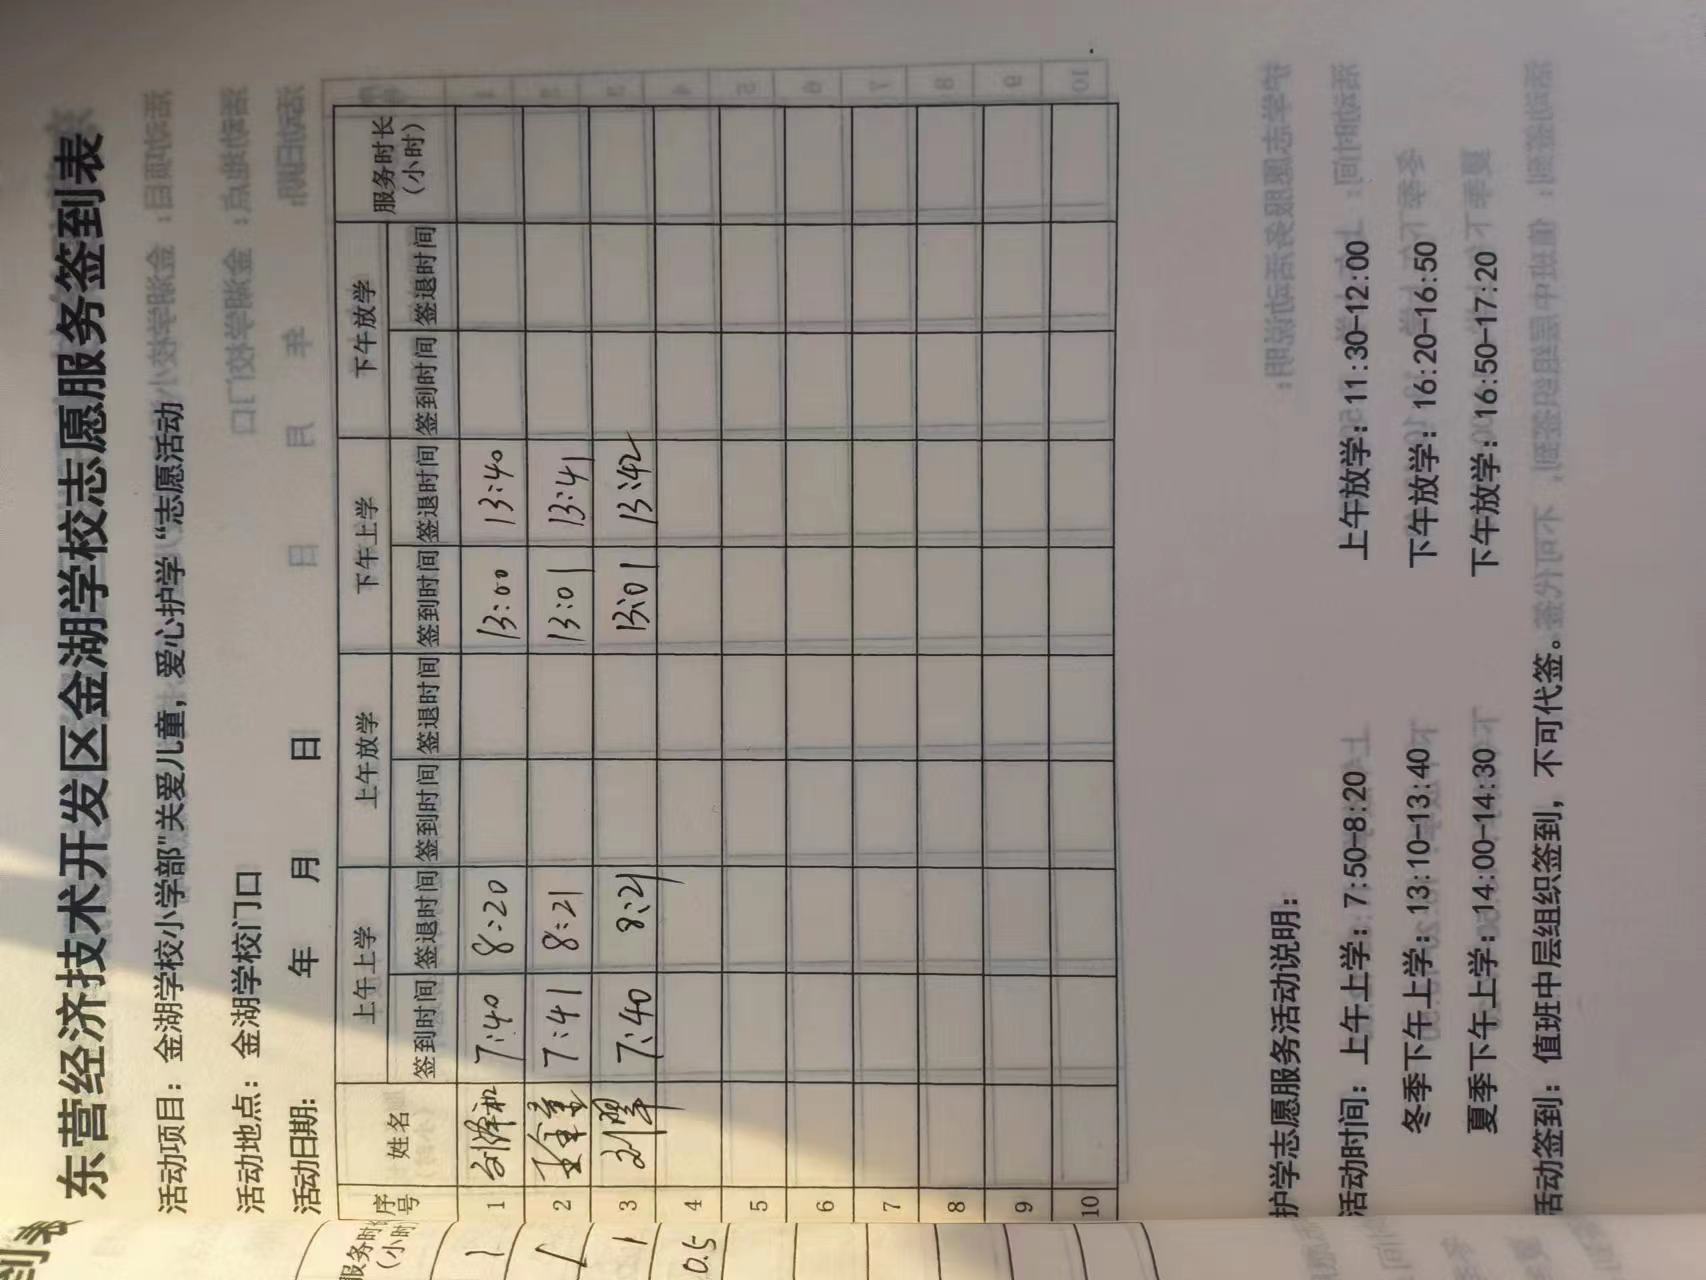 东营经济技术开发区金湖学校志愿服务签到表
活动项目：金湖学校小学部"关爱儿童，爱心护学"志愿活动
活动地点：金湖学校门口
活动日期： 年 月 日
序号 姓名 上午上学 上午放学 下午上学 下午放学 服务时长（小时）
签到时间 签退时间 签到时间 签退时间 签到时间 签退时间 签到时间 签退时间
1 7:40 8:20 13:00 13:40
2 7:41 8:21 13:01 13:41
3 刘翠 7:40 8:21 13:01 13:42
4
5
6
7
8
9
10
护学志愿服务活动说明：
活动时间：上午上学：7:50-8:20 上午放学：11:30-12:00
冬季下午上学：13:10-13:40 下午放学：16:20-16:50
夏季下午上学：14:00-14:30 下午放学：16:50-17:20
活动签到：值班中层组织签到，不可代签。
到表
服务时长
（小时
1
1
1
0.5